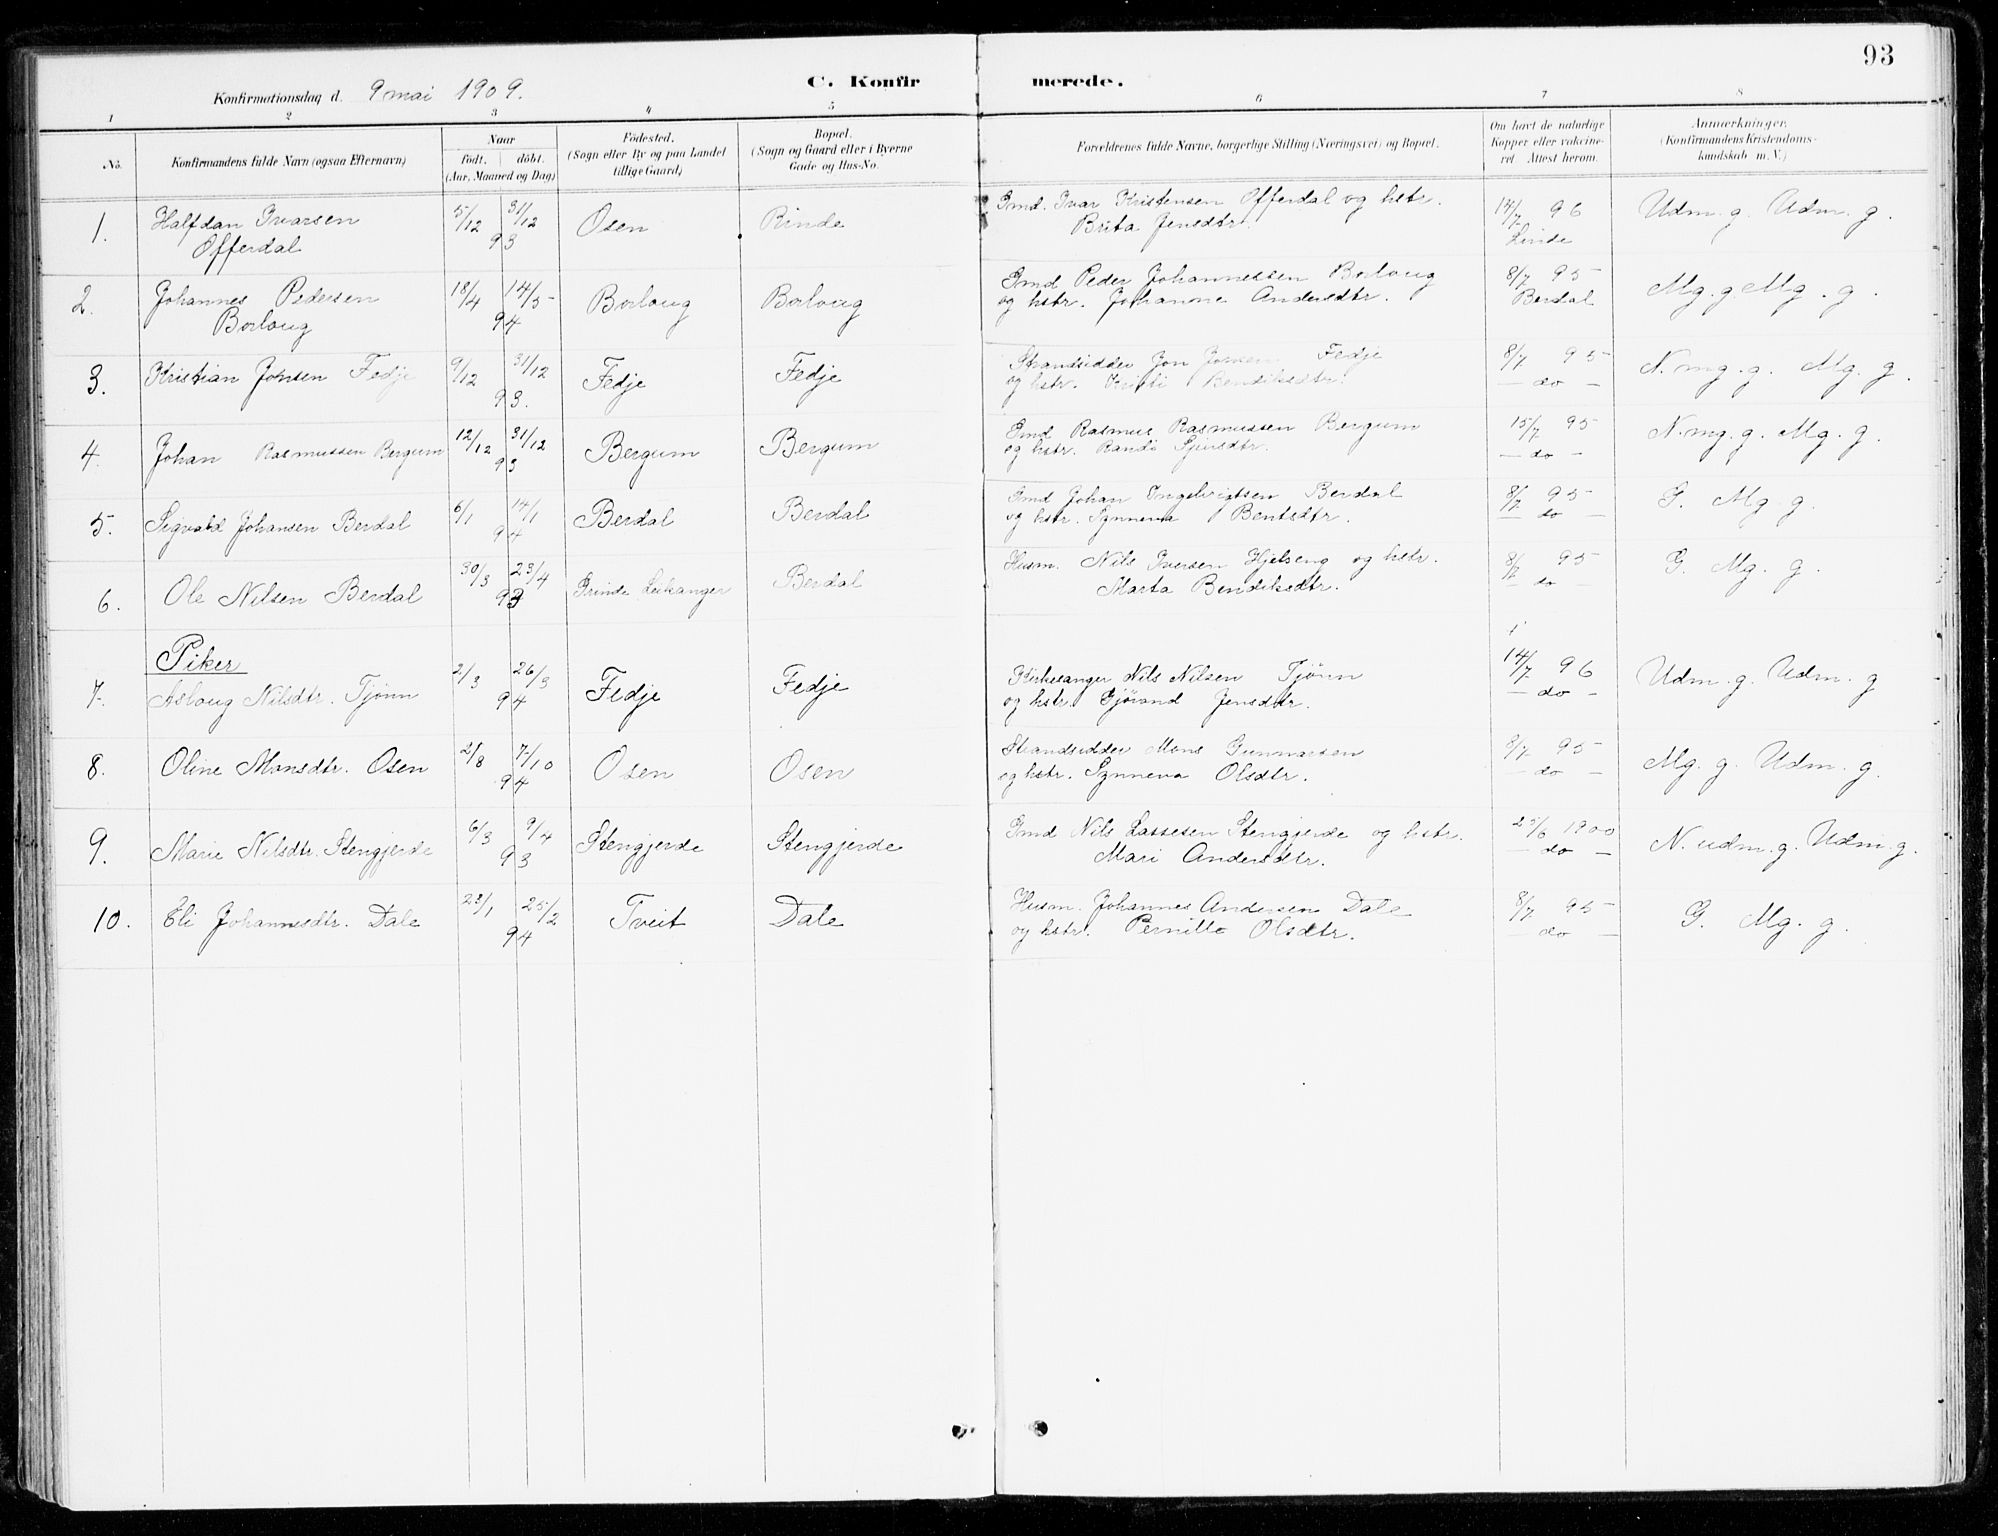 93
C. Konfirmerede.
Konfirmationsdag d. 9 mai 1909.
1 2 3 4 5 6 7 8
No. Konfirmandens fulde Navn (ogsaa Efternavn)
Naar født. døbt. (Aar, Maaned og Dag)
Fødested. (Sogn eller By og paa Landet tillige Gaard)
Bopæl. (Sogn og Gaard eller i Byerne Gade og Hus-No.
Forældrenes fulde Navne, borgerlige Stilling (Næringsvei) og Bopæl.
Om havt de naturlige Kopper eller vakcineret. Attest herom.
Anmærkninger. (Konfirmandens Kristendomskundskab m. V.)
1. Halfdan Ivarsen Offerdal 5/12 31/12 93 Osen Rinde Gmd. Ivar Kristensen Offerdal og hstr. Brita Jensdtr. 14/7 96 Linde Udm. g. Udm. g.
2. Johannes Pedersen Borlaug 18/4 14/5 94 Borlaug Borlaug Gmd Peder Johannessen Borlaug og hstr. Johanne Andersdtr. 8/7 95 Berdal Mg. g Mg. g.
3. Kristian Jonsen Fedje 9/12 31/12 93. Fedje Fedje Strandsidder Jon Jonsen Fedje og hstr. Kristi Bendiksdtr. 8/7 95 — do — N. mg. g. Mg. g.
4. Johan Rasmussen Bergum 12/12 31/12 93 Bergum Bergum Gmd Rasmus Rasmussen Bergum og hstr. Randi Sjursdtr. 15/7 95 — do — N. mg. g. Mg. g.
5. Sigvald Johansen Berdal 6/1 14/1 94 Berdal Berdal Gmd Johan Ingebrigtsen Berdal og hstr. Synneva Bentsdtr. 8/7 95 — do — G. Mg. g.
6. Ole Nilsen Berdal 30/3 23/4 93 Grinde Leikanger Berdal Husm. Nils Iversen Hjelseng og hstr. Marta Bendiksdtr. 8/7 95 — do — G. Mg. g.
Piker
7. Aslaug Nilsdtr. Tjønn 2/3 26/3 94 Fedje Fedje Kirkesanger Nils Nilsen Tjønn og hstr. Gjørond Jensdtr. 14/7 96 — do — Udm. g. Udm. g
8. Oline Monsdtr. Osen 2/8 7/10 94 Osen Osen Strandsidder Mons Gunnarsen og hstr. Synneva Olsdtr. 8/7 95 — do — Mg. g. Udm. g.
9. Marie Nilsdtr. Stengjerde 6/3 9/4 93 Stengjerde Stengjerde Gmd Nils Lassesen Stengjerde og hstr. Mari Andersdtr. 25/6 1900 — do — N. udm. g. Udm. g.
10. Eli Johannesdtr. Dale 23/1 25/2 94 Tveit Dale Husm. Johannes Andersen Dale og hstr. Pernille Olsdtr. 8/7 95 — do — G. Mg. g.